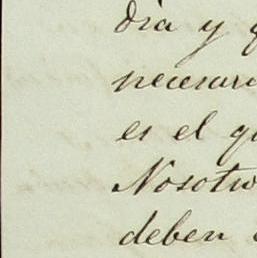 dia y q
necesari
es el qu
Nosotro
deben